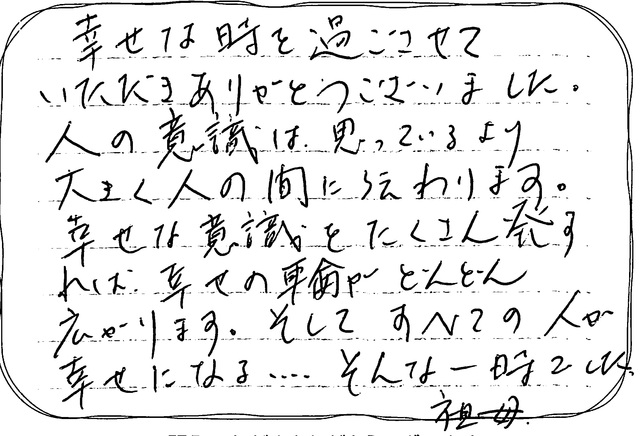 幸せな時を過ごさせて
いただきありがとうございました。
人の意識は思っているより
大きく人の間に伝わります。
幸せな意識をたくさん発す
れば幸せの輪が どんどん
広がります。そして すべての人が
幸せになる.... そんな一時でした。
祖母.